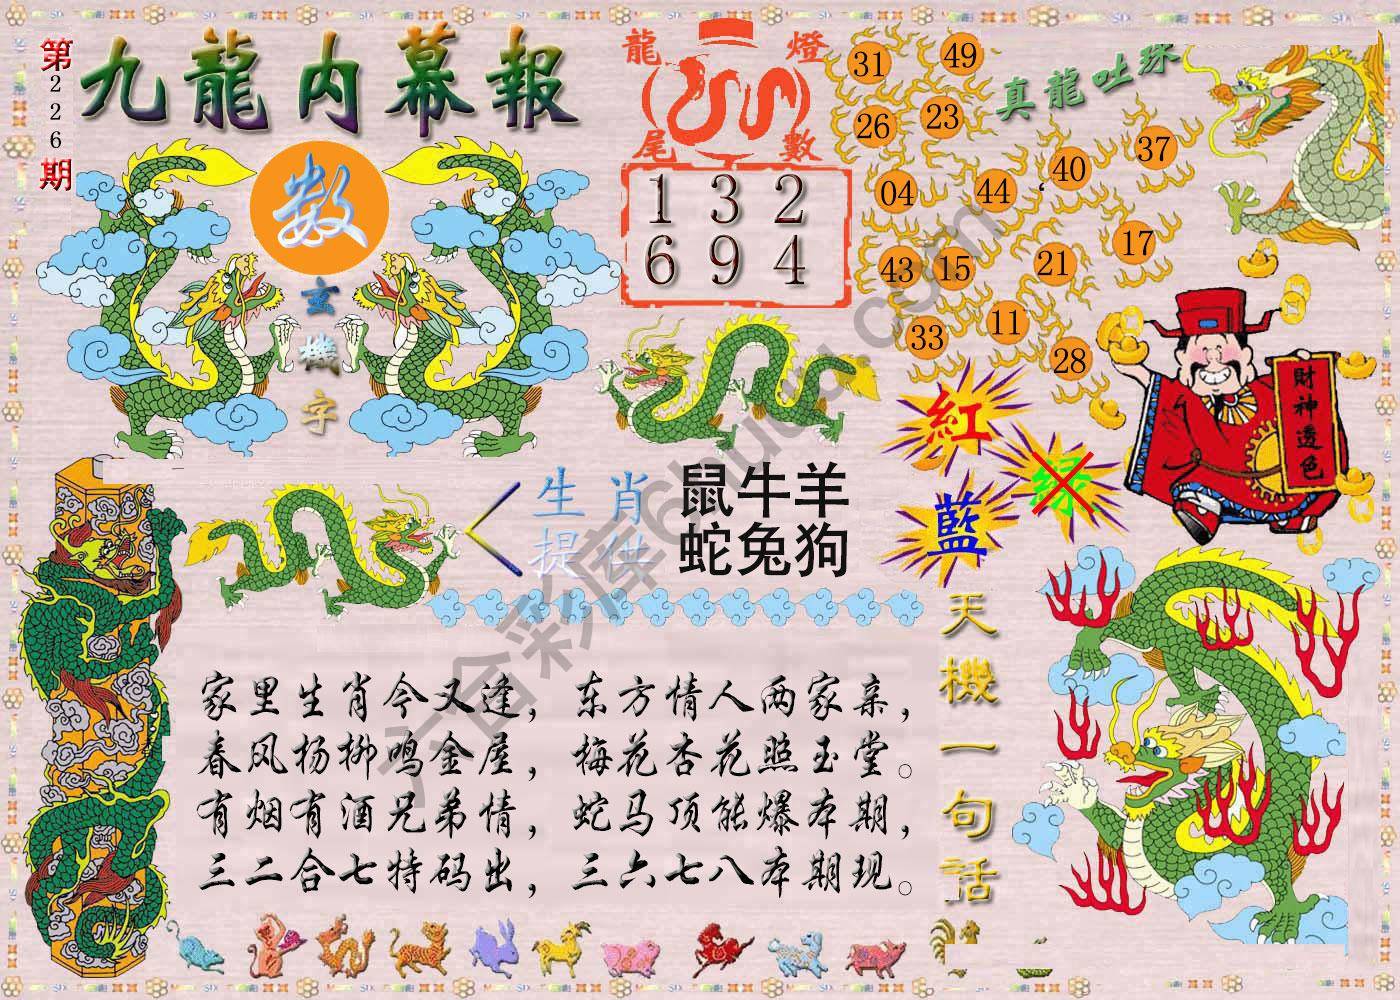 第226期
九龍内幕報
数
玄機字
龍燈
尾數
1 3 2
6 9 4
真龍吐珠
31 49
26 23
04 44 40 37
43 15 21 17
33 11 28
財神透色
紅
绿
藍
生肖
提供
鼠牛羊
蛇兔狗
天機一句話
家里生肖今又逢，东方情人两家亲，
春风杨柳鸣金屋，梅花杏花照玉堂。
有烟有酒兄弟情，蛇马顶能爆本期，
三二合七特码出，三六七八本期现。
六合彩库6huou.com